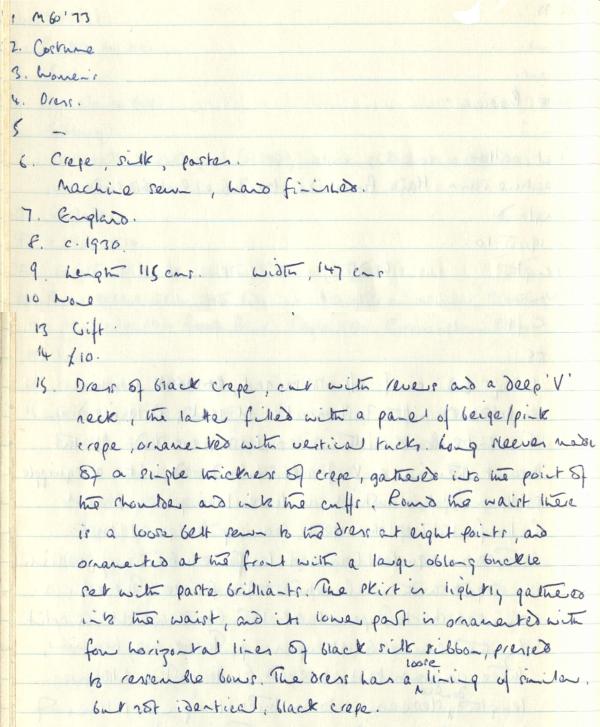 1 M60'73
2. Costume
3. Women's
4. Dress.
5 —
6. Crepe, silk, paste.
Machine sewn, hand finished.
7. England.
8. c.1930.
9. Length 115 cms. Width, 147 cms
10 None
13 Gift.
14 £10.
15. Dress of black crepe, cut with revers and a deep 'V'
neck, the latter filled with a panel of beige/pink
crepe, ornamented with vertical tucks. Long sleeves made
of a single thickness of crepe, gathered into the point of
the shoulder and into the cuffs. Round the waist there
is a loose belt sewn to the dress at eight points, and
ornamented at the front with a large oblong buckle
set with paste brilliants. The skirt is lightly gathered
into the waist, and its lower part is ornamented with
four horizontal lines of black silk ribbon, pressed
to resemble bows. The dress has a loose lining of similar,
but not identical, black crepe.